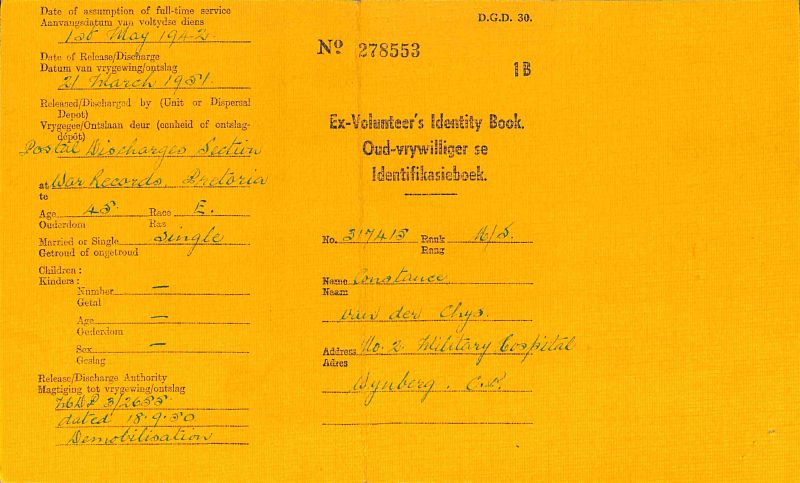 Date of assumption of full-time service
Aanvangsdatum van voltydse diens
1st May 1942
Date of Release/Discharge
Datum van vrygewing/ontslag
21 March 1951
Released/Discharged by (Unit or Dispersal
Depot)
Vrygegee/Ontslaan deur (eenheid of ontslag-
depôt)
Postal Discharges Section
at War Records, Pretoria
te
Age 45 Race E.
Ouderdom Ras
Married or Single Single
Getroud of ongetroud
Children:
Kinders:
Number —
Getal
Age —
Ouderdom
Sex —
Geslag
Release/Discharge Authority
Magtiging tot vrygewing/ontslag
3/2655
dated 18.9.50
Demobilisation
D.G.D. 30.
No 278553
1B
Ex-Volunteer's Identity Book.
Oud-vrywilliger se
Identifikasieboek.
No. 317415 Rank A/S.
Rang
Name Constance
Naam
van der Chys.
Address No. 2. Military Hospital
Adres
Wynberg. C.P.